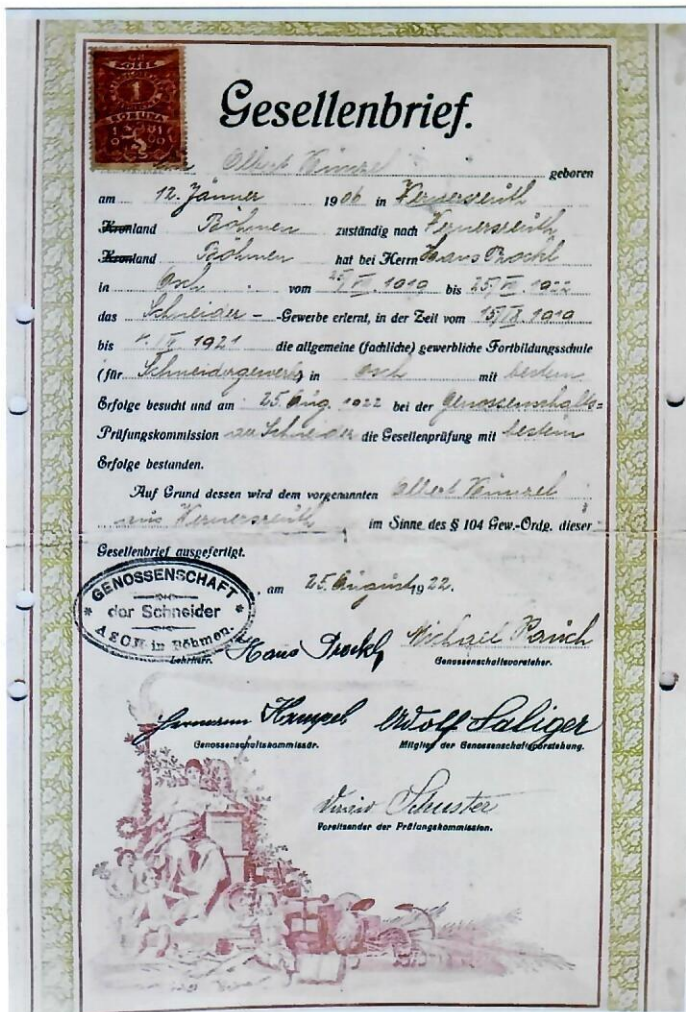 KOLEK
1
KORUNA
Gesellenbrief.
Albert Künzel geboren
am 12. Jänner 1906 in Wernersreuth
Kronland Böhmen zuständig nach Wernersreuth
Kronland Böhmen hat bei Herrn Hans Prockl
in Asch vom 25/VII. 1919 bis 25/VII. 1922
das Schneider-Gewerbe erlernt, in der Zeit vom 15/IX. 1919
bis 1921 die allgemeine (fachliche) gewerbliche Fortbildungsschule
(für Schneidergewerbe) in Asch mit bestem
Erfolge besucht und am 25. Aug. 1922 bei der Genossenschafts-
Prüfungskommission der Schneider die Gesellenprüfung mit bestem
Erfolge bestanden.
Auf Grund dessen wird dem vorgenannten Albert Künzel
aus Wernersreuth im Sinne des § 104 Gew.-Ordg. dieser
Gesellenbrief ausgefertigt.
GENOSSENSCHAFT
der Schneider
ASCH in Böhmen.
am 25. August 1922.
Lehrherr. Hans Prockl Michael Rauch
Genossenschaftsvorsteher.
Hermann Hampel Adolf Saliger
Genossenschaftskommissär. Mitglied der Genossenschaftsvorstehung.
Schuster
Vorsitzender der Prüfungskommission.